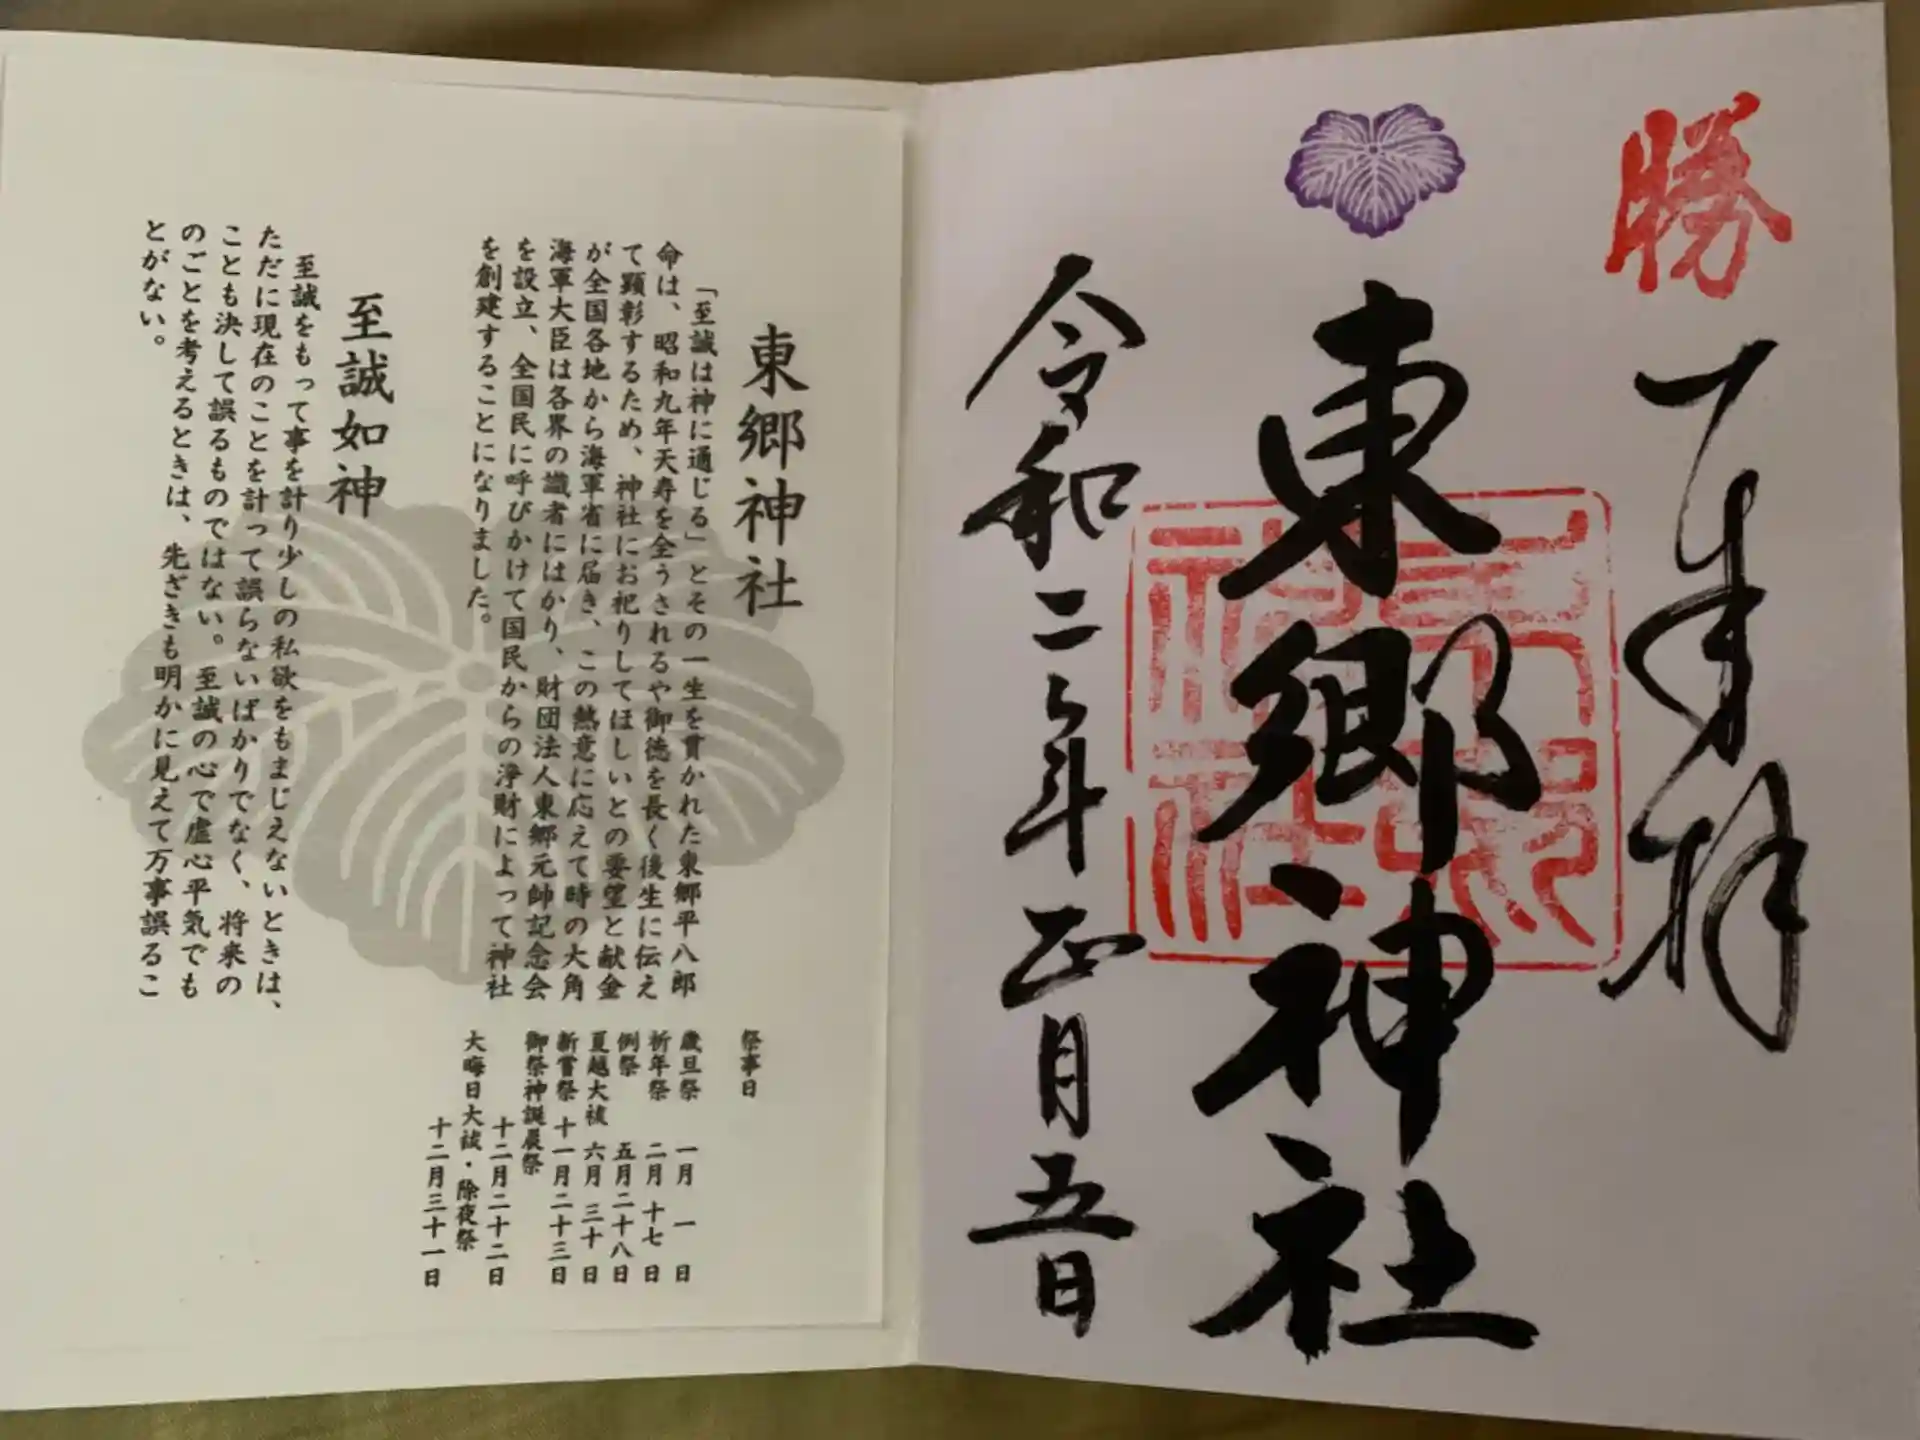 勝
奉拝
東郷神社
令和二年正月五日
東郷神社
「至誠は神に通じる」とその一生を貫かれた東郷平八郎
命は、昭和九年天寿を全うされるや御徳を長く後生に伝え
て顕彰するため、神社にお祀りしてほしいとの要望と献金
が全国各地から海軍省に届き、この熱意に応えて時の大角
海軍大臣は各界の識者にはかり、財団法人東郷元帥記念会
を設立、全国民に呼びかけて国民からの浄財によって神社
を創建することになりました。
至誠如神
至誠をもって事を計り少しの私欲をもまじえないときは、
ただに現在のことを計って誤らないばかりでなく、将来の
ことも決して誤るものではない。至誠の心で虚心平気でも
のごとを考えるときは、先ざきも明かに見えて万事誤るこ
とがない。
祭事日
歳旦祭 一月 一 日
祈年祭 二月 十七 日
例祭 五月二十八日
夏越大祓 六月 三十 日
新嘗祭 十一月二十三日
御祭神誕辰祭
十二月二十二日
大晦日大祓・除夜祭
十二月三十一日